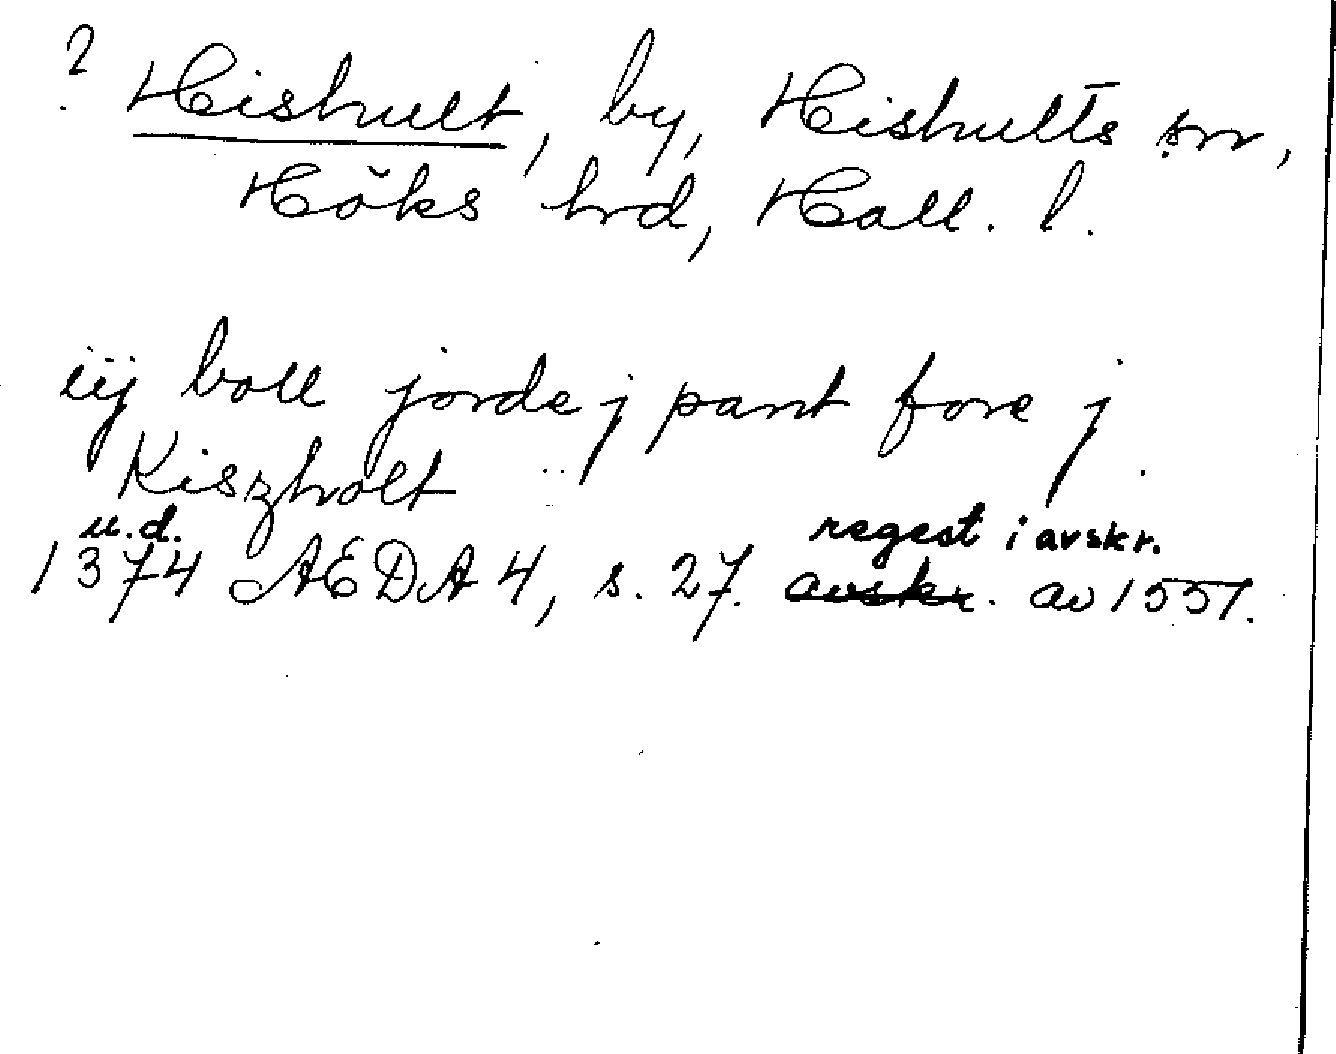 ? Hishult, by, Hishults sn,
Höks hrd, Hall. l.
iij boll jorde j pant fore j
Kiszholt
u.d.
1374 AEDA 4, s. 27. regest i avskr. av 1551.